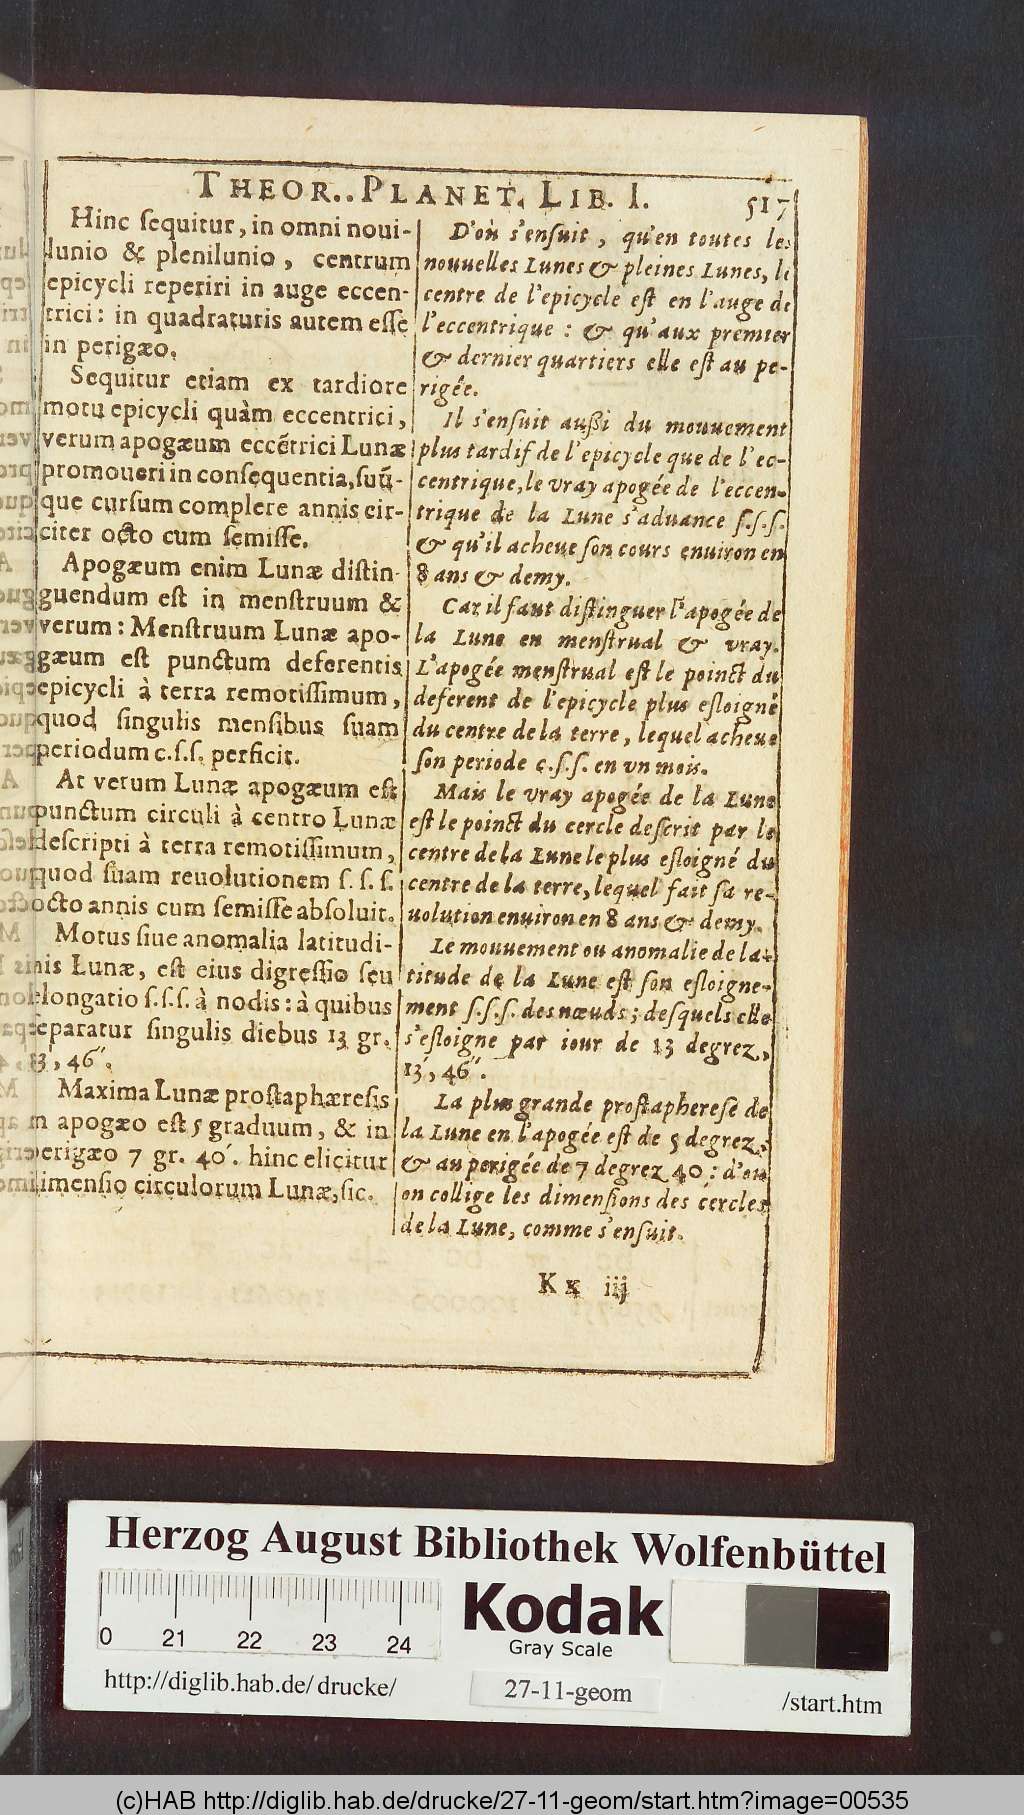 THEOR.. PLANET. LIB. I.
517
Hinc ſequitur, in omni noui-
lunio & plenilunio, centrum
epicycli reperiri in auge eccen-
trici: in quadraturis autem eſſe
in perigæo.
Sequitur etiam ex tardiore
motu epicycli quàm eccentrici,
verum apogæum eccētrici Lunæ
promoueri in conſequentia, ſuū-
que curſum complere annis cir-
citer octo cum ſemiſſe.
Apogæum enim Lunæ diſtin-
guendum eſt in menſtruum &
verum: Menſtruum Lunæ apo-
gæum eſt punctum deferentis
epicycli à terra remotiſſimum,
quod ſingulis menſibus ſuam
periodum c.ſ.ſ. perficit.
At verum Lunæ apogæum eſt
punctum circuli à centro Lunæ
deſcripti à terra remotiſſimum,
quod ſuam reuolutionem ſ. ſ. ſ.
octo annis cum ſemiſſe abſoluit.
Motus ſiue anomalia latitudi-
nis Lunæ, eſt eius digreſſio ſeu
elongatio ſ.ſ.ſ. à nodis: à quibus
ſeparatur ſingulis diebus 13 gr.
13′, 46″.
Maxima Lunæ proſtaphæreſis
in apogæo eſt 5 graduum, & in
perigæo 7 gr. 40′. hinc elicitur
dimenſio circulorum Lunæ, ſic.
D'où s'enſuit, qu'en toutes les
nouuelles Lunes & pleines Lunes, le
centre de l'epicycle eſt en l'auge de
l'eccentrique : & qu'aux premier
& dernier quartiers elle eſt au pe-
rigée.
Il s'enſuit außi du mouuement
plus tardif de l'epicycle que de l'ec-
centrique, le vray apogée de l'eccen-
trique de la Lune s'aduance ſ.ſ.ſ.
& qu'il acheue ſon cours enuiron en
8 ans & demy.
Car il faut diſtinguer l'apogée de
la Lune en menſtrual & vray.
L'apogée menſtrual eſt le poinct du
deferent de l'epicycle plus eſloigné
du centre de la terre, lequel acheue
ſon periode c.ſ.ſ. en vn mois.
Mais le vray apogée de la Lune
eſt le poinct du cercle deſcrit par le
centre de la Lune le plus eſloigné du
centre de la terre, lequel fait ſa re-
uolution enuiron en 8 ans & demy.
Le mouuement ou anomalie de la-
titude de la Lune eſt ſon eſloigne-
ment ſ.ſ.ſ. des nœuds; deſquels elle
s'eſloigne par iour de 13 degrez,
13′, 46″.
La plus grande proſtaphereſe de
la Lune en l'apogée eſt de 5 degrez;
& au perigée de 7 degrez 40′: d'ou
on collige les dimenſions des cercles
de la Lune, comme s'enſuit.
Kx iij
Herzog August Bibliothek Wolfenbüttel
Kodak
Gray Scale
0 21 22 23 24
http://diglib.hab.de/ drucke/
27-11-geom
/start.htm
(c)HAB http://diglib.hab.de/drucke/27-11-geom/start.htm?image=00535